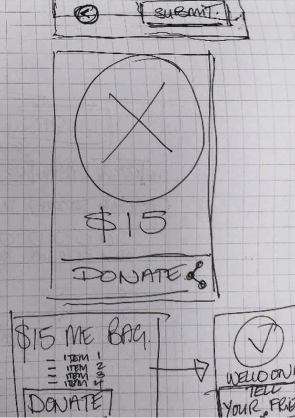 SUBMIT.
$15
DONATE
$15 ME BAG.
ITEM 1
ITEM 2
ITEM 3
ITEM 4
DONATE
WELL DON
TELL
YOUR FRIE